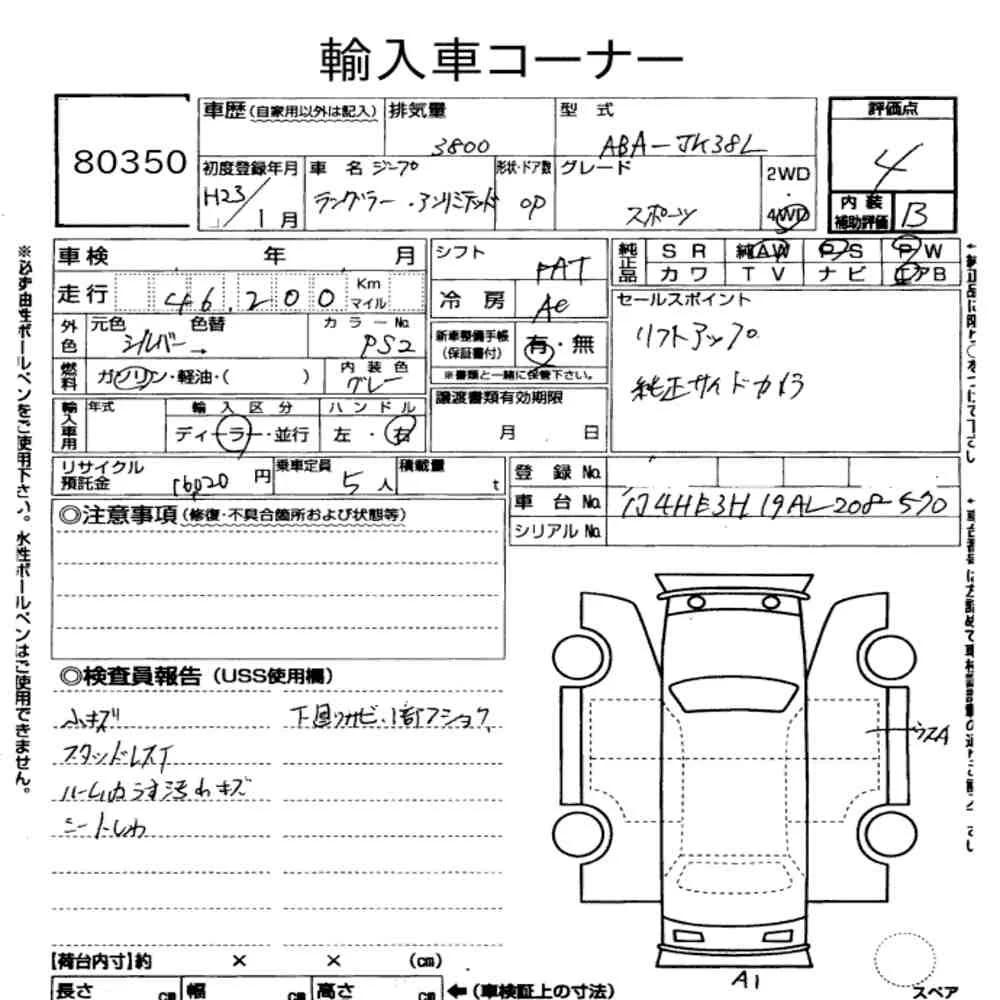 輸入車コーナー
80350
車歴(自家用以外は記入) 排気量 型式 評価点
3800 ABA-JK38L 4
初度登録年月 車名 ジープ 形状・ドア数 グレード 2WD
・
H23/1月 ラングラー・アンリミテッド OP スポーツ 4WD
内装補助評価 B
車検 年 月
走行 46,200 Km マイル
外色 元色 色替 カラーNo.
シルバー → PS2
燃料 ガソリン・軽油・( ) 内装色 グレー
輸入車用 年式 輸入区分 ハンドル
ディーラー・並行 左・右
リサイクル預託金 16020円 乗車定員 5人 積載量 t
シフト FAT
冷房 AC
新車整備手帳(保証書付) 有・無
※書類と一緒に保管下さい。
譲渡書類有効期限
月 日
純正品 SR 純AW PS PW
カワ TV ナビ エアB
セールスポイント
リフトアップ
純正サイドカメラ
登録No.
車台No. 1J4HE3H19AL-208-570
シリアルNo.
◎注意事項(修復・不具合箇所および状態等)
◎検査員報告(USS使用欄)
小キズ
スタッドレスT
ルーム内うす汚れキズ
シートしわ
下回りサビ、1部フショク
ウスA
A1
スペア
【荷台内寸】約 × × (cm)
長さ cm 幅 cm 高さ cm ←(車検証上の寸法)
※必ず油性ボールペンをご使用下さい。水性ボールペンはご使用できません。